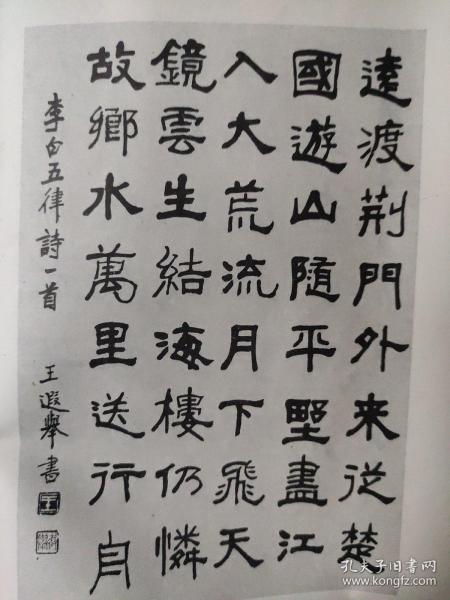 遠渡荆門外来從楚
國遊山隨平野盡江
入大荒流月下飛天
鏡雲生結海樓仍憐
故鄉水萬里送行舟
李白五律詩一首 王遐舉書
孔夫子旧书网
www.kongfz.com